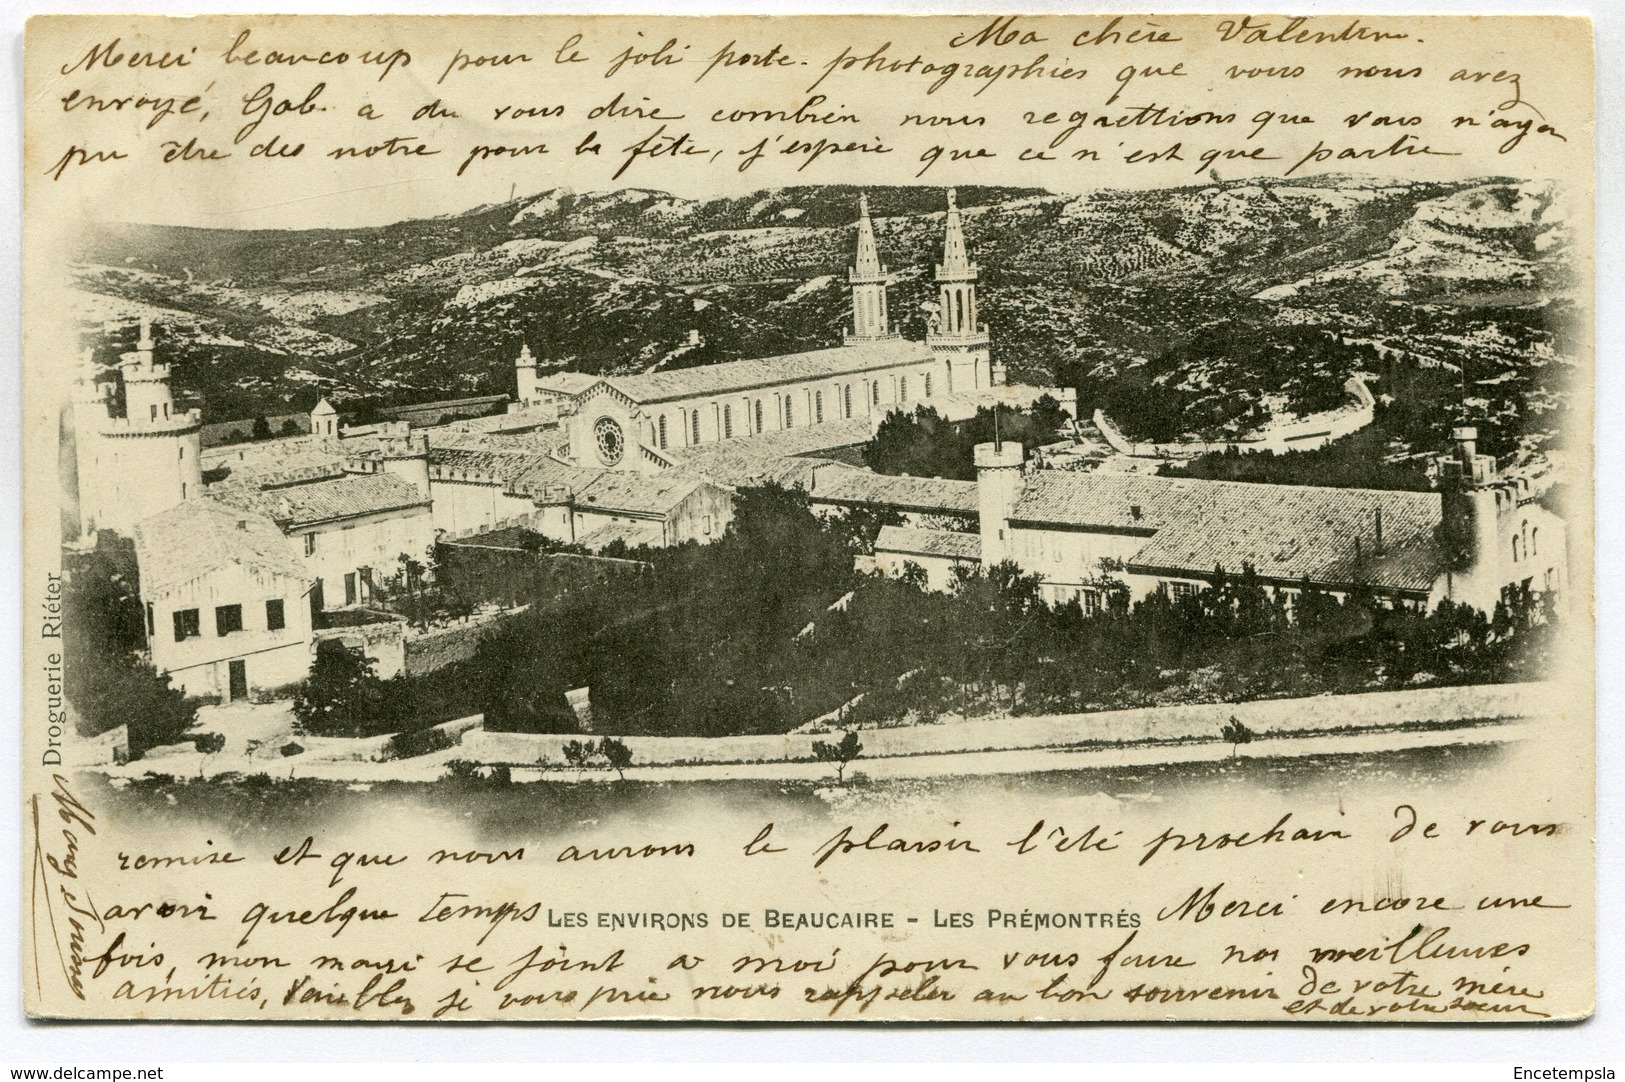 Ma chère Valentine.
Merci beaucoup pour le joli porte-photographies que vous nous avez
envoyé, Gab. a du vous dire combien nous regrettions que vous n'ayez
pu être des notre pour la fête, j'espère que ce n'est que partie
Droguerie Riéter
remise et que nous aurons le plaisir l'été prochain de vous
avoir quelque temps Merci encore une
LES ENVIRONS DE BEAUCAIRE - LES PRÉMONTRÉS
fois, mon mari se joint a moi pour vous faire nos meilleures
amitiés, Veuillez je vous prie nous rappeler au bon souvenir de votre mère
et de votre soeur
www.encetempsla.eu.cc
Encetempsla